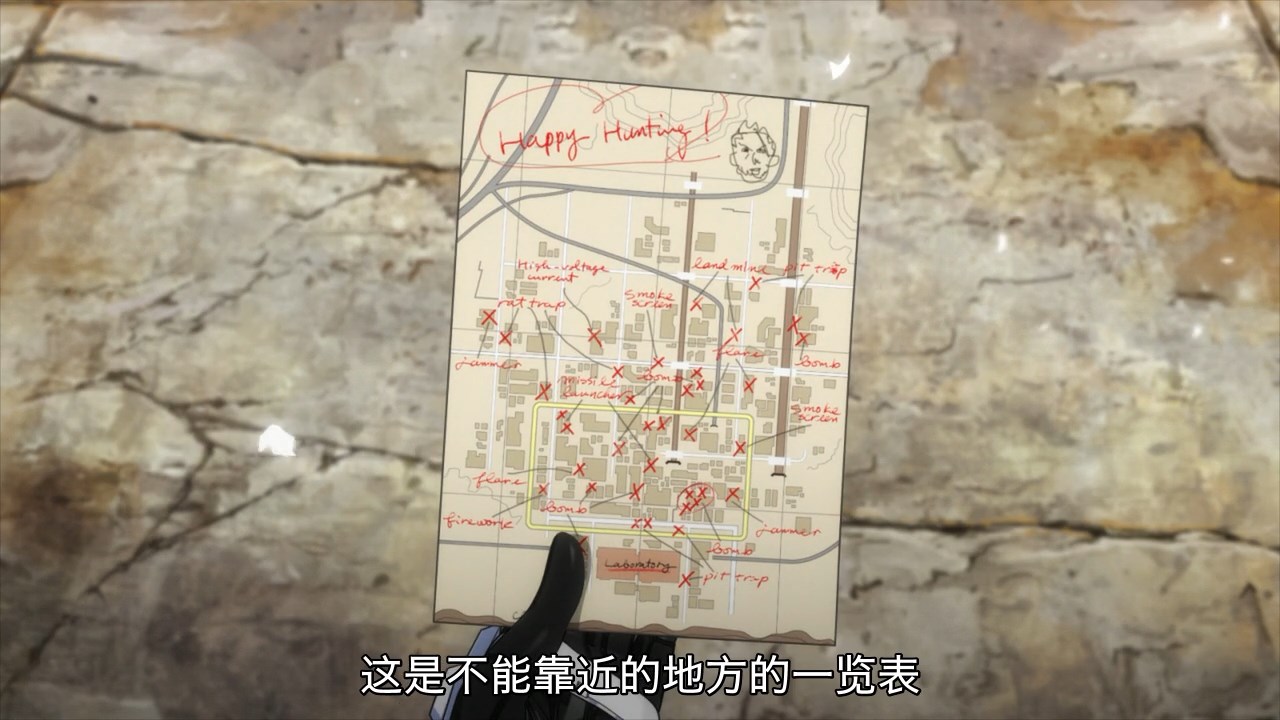 Happy Hunting!
High-voltage
current
land mine
pit trap
rat trap
smoke
screen
flare
jammer
missile
launcher
bomb
bomb
smoke
screen
flare
bomb
firework
jammer
bomb
Laboratory
pit trap
这是不能靠近的地方的一览表